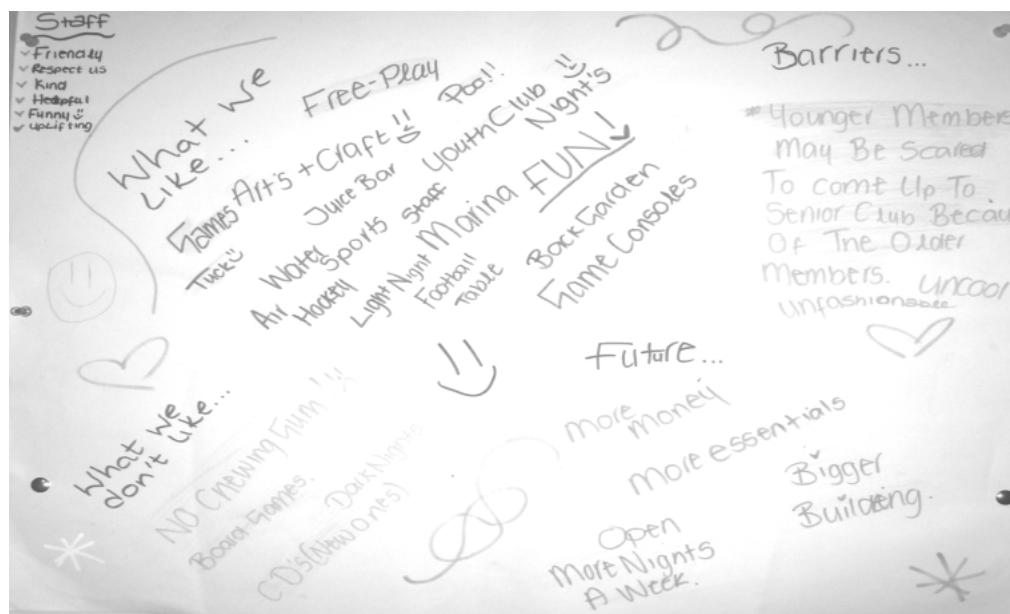 Staff
Friendly
Respect us
Kind
Helpful
Funny
Uplifting
What we
Like...
Free-Play
Poo!!
Games Art's + Craft!!
Youth Club
Night's
Tuck
Juice Bar
Staff
Marina FUN!
Water
Sports
Air
Hockey
Light Night
Football
Table
Back Garden
Game Consoles
Barriers...
Younger Members
May Be Scared
To come Up To
Senior Club Becau
Of The Older
Members. Uncool
Unfashionable
What we
don't Like...
No Chewing Gum!
Board Games.
Dark Nights
CD's (New ones)
Future...
More
Money
More essentials
Bigger
Building.
Open
More Nights
A Week.